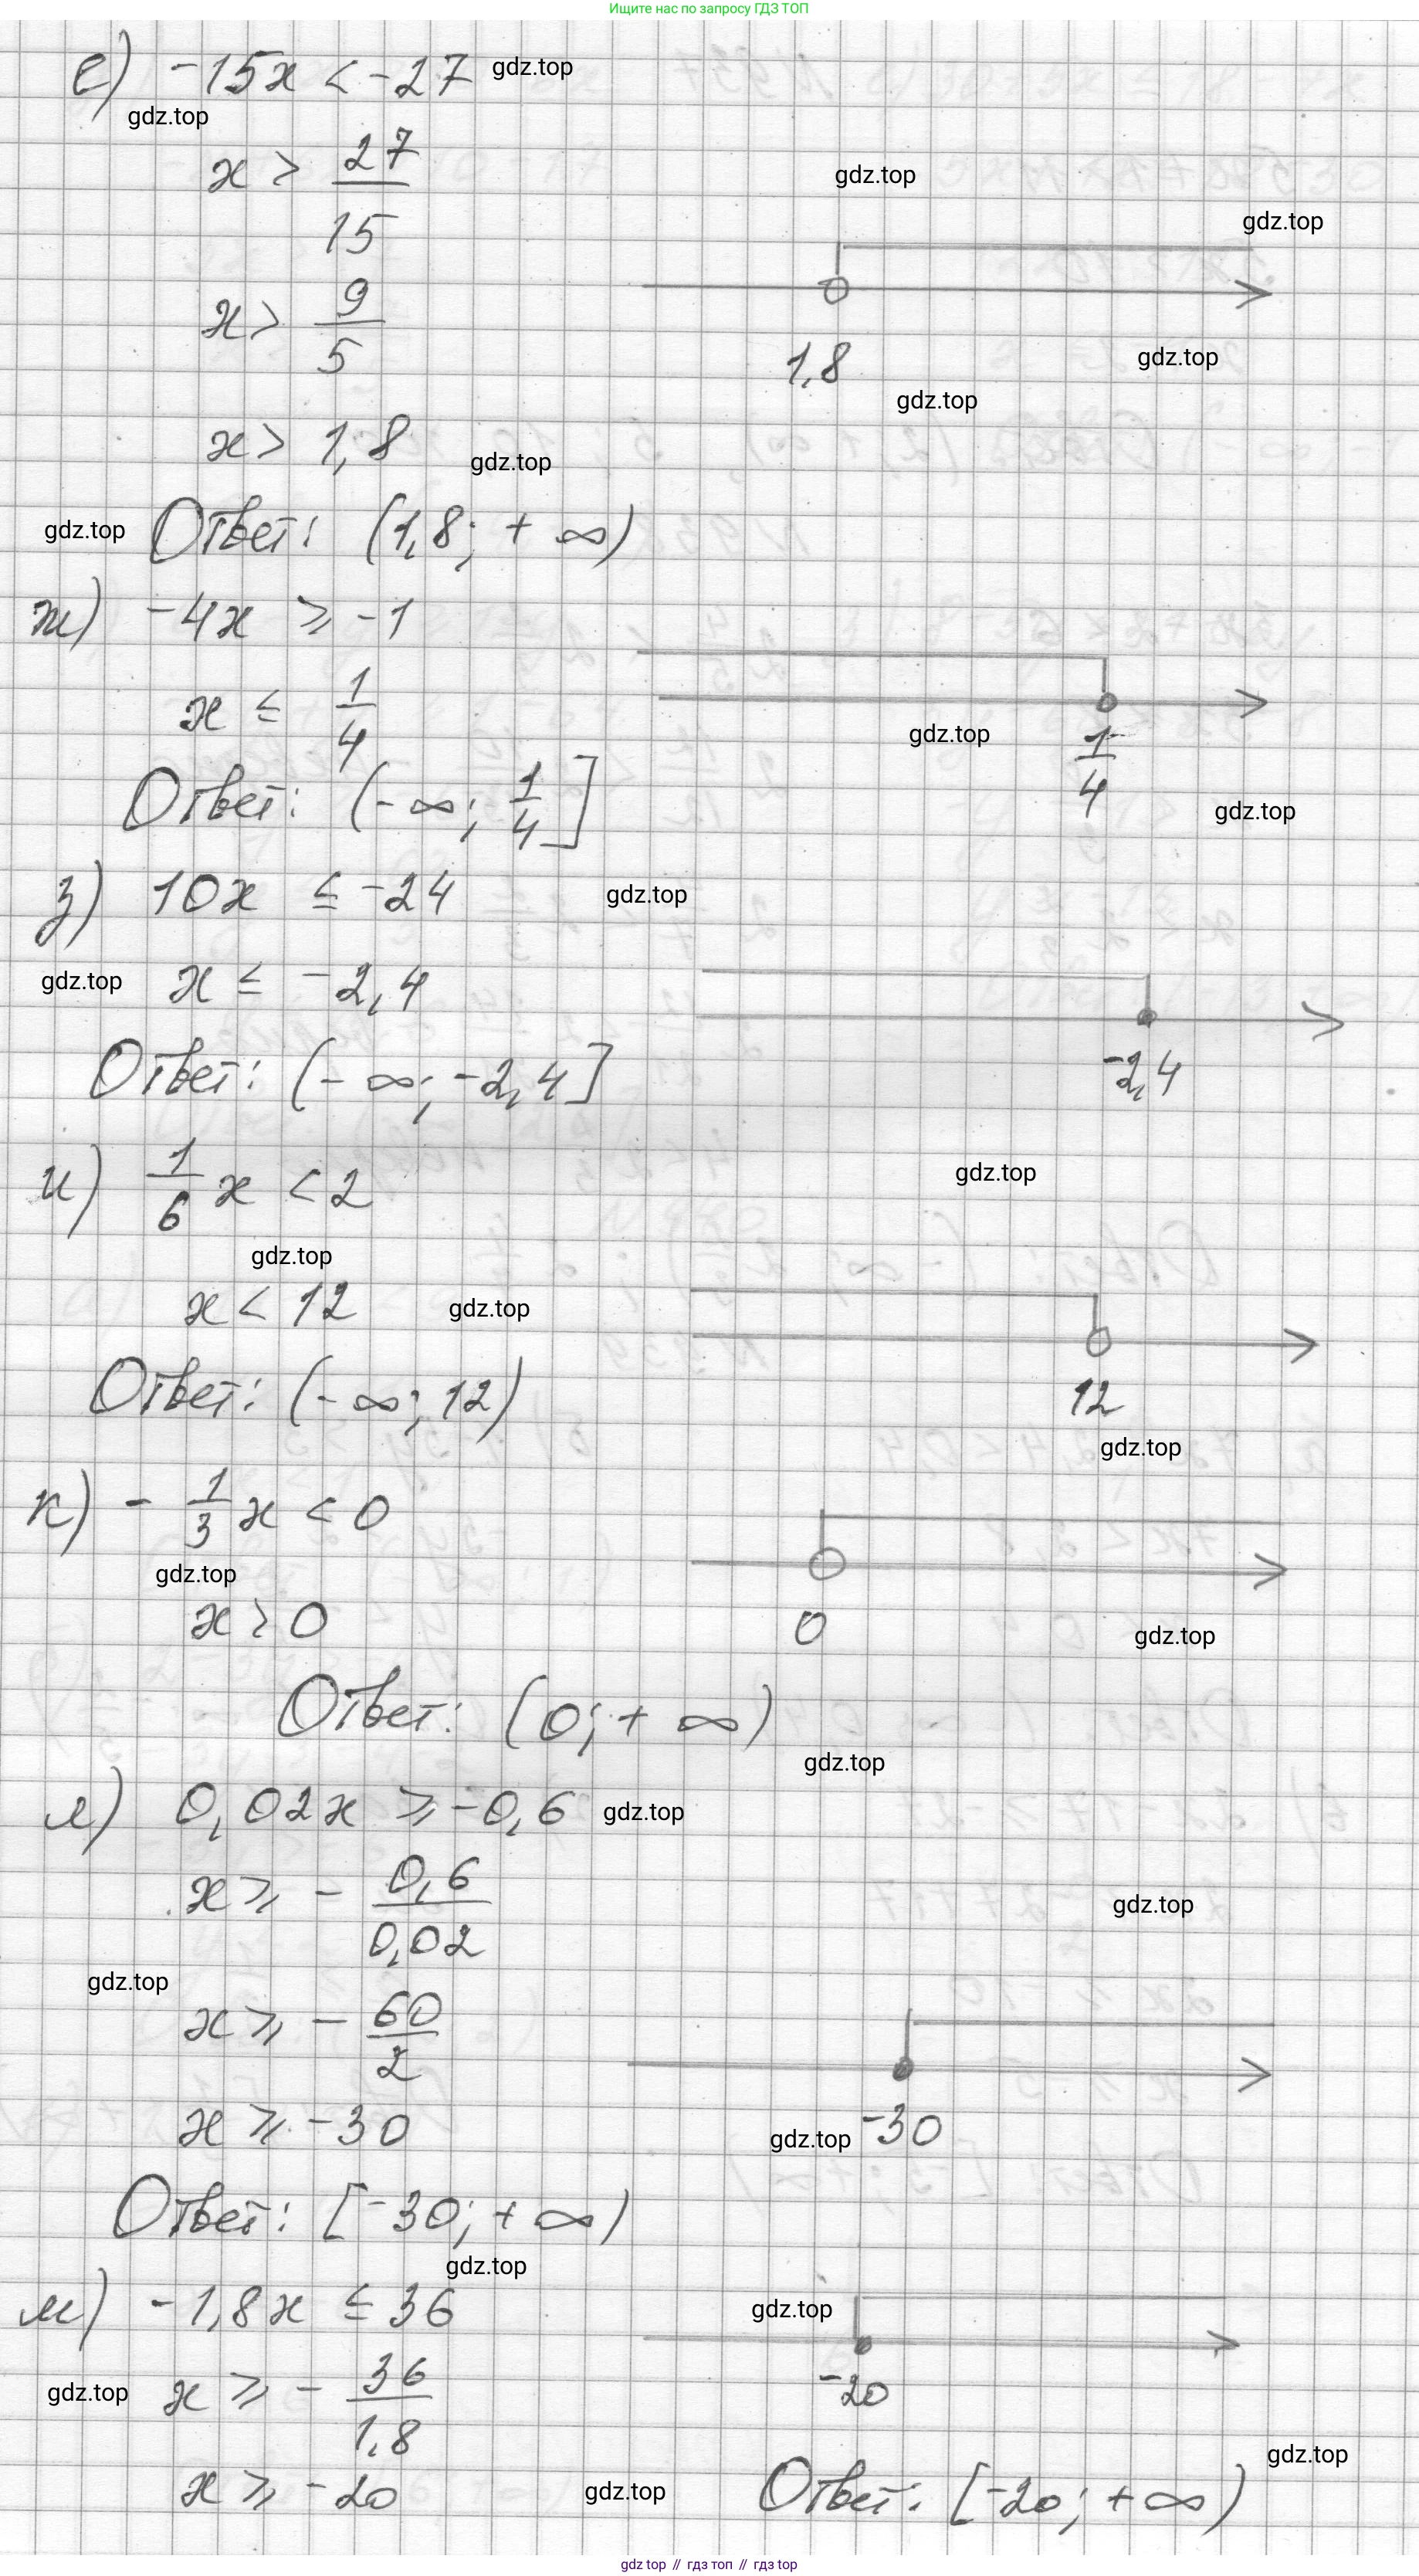 Ищите нас по запросу ГДЗ ТОП
е) -15x < -27 gdz.top
gdz.top
x > 27/15
gdz.top
gdz.top
x > 9/5
1,8
gdz.top
gdz.top
x > 1,8
gdz.top
gdz.top Ответ: (1,8; + ∞)
ж) -4x ⩾ -1
x ≤ 1/4
gdz.top
1/4
Ответ: (-∞; 1/4]
gdz.top
з) 10x ≤ -24 gdz.top
gdz.top x ≤ -2,4
-2,4
Ответ: (-∞; -2,4]
и) 1/6 x < 2
gdz.top
gdz.top
x < 12 gdz.top
12
Ответ: (-∞; 12)
gdz.top
к) - 1/3 x < 0
gdz.top
x > 0
0
gdz.top
Ответ: (0; + ∞)
gdz.top
л) 0,02x ⩾ -0,6 gdz.top
x ⩾ - 0,6/0,02
gdz.top
gdz.top
x ⩾ - 60/2
x ⩾ -30
gdz.top -30
Ответ: [-30; + ∞)
gdz.top
м) -1,8x ≤ 36 gdz.top
gdz.top x ⩾ - 36/1,8
-20
gdz.top
x ⩾ -20 gdz.top Ответ: [-20; + ∞)
gdz top // гдз топ // гдз top